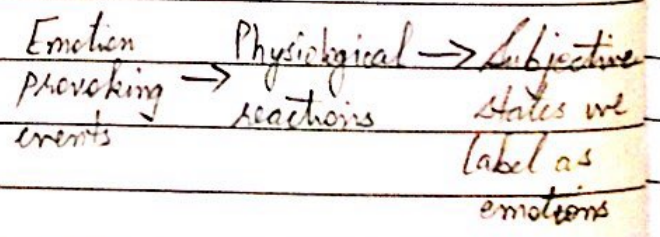 Emotion provoking events → Physiological reactions → Subjective states we label as emotions